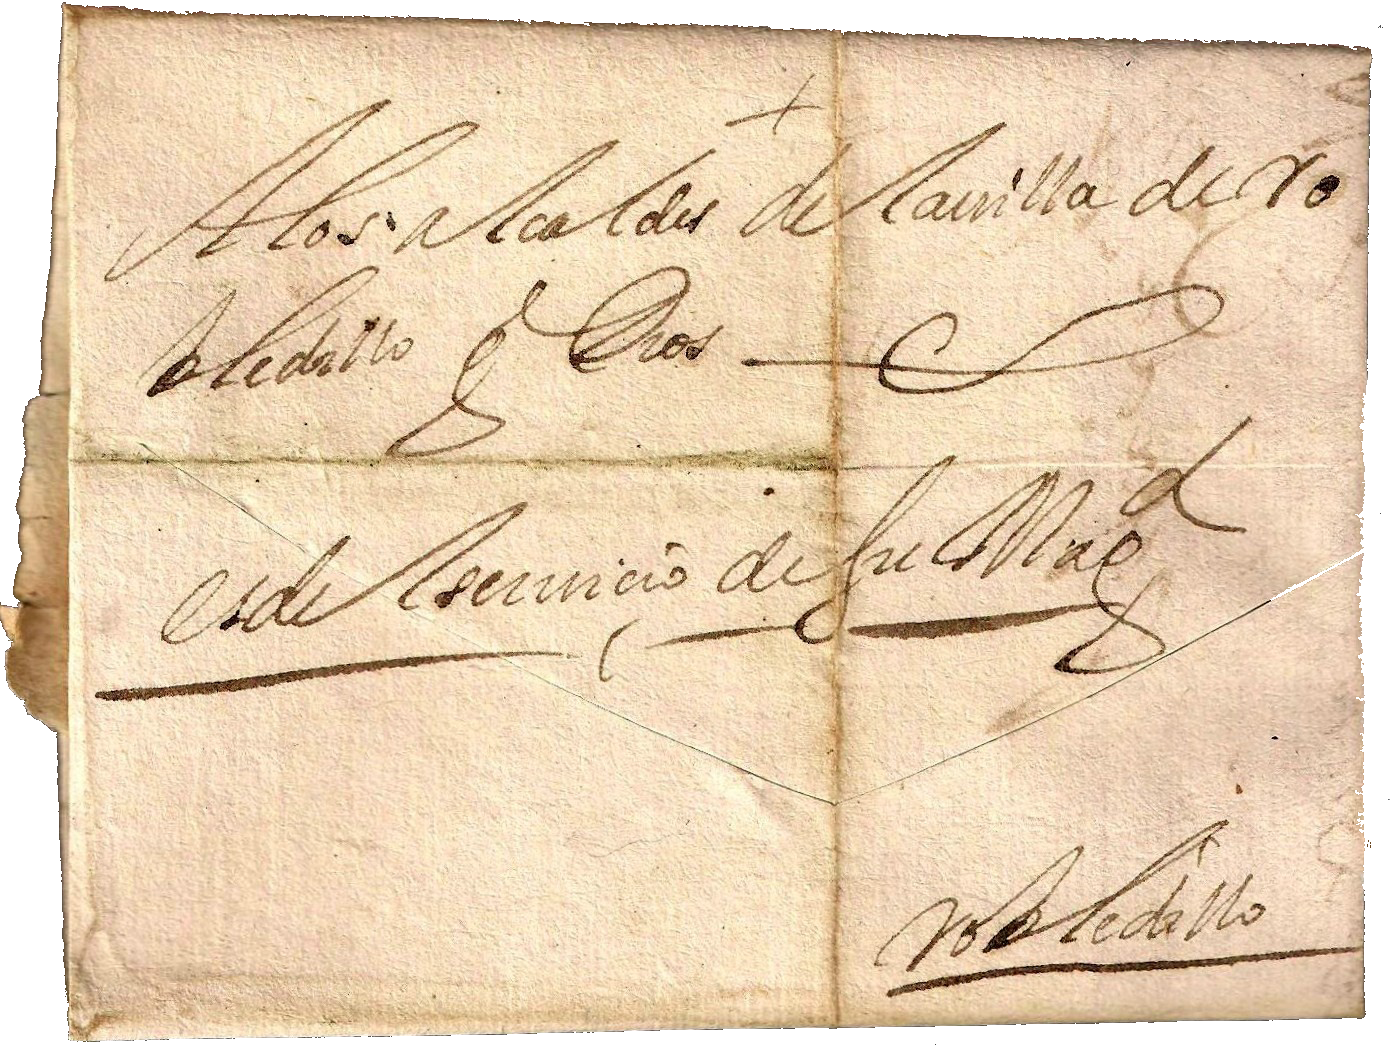 +
A los alcaldes de la uilla de ro
bledillo g Dios
es del seruicio de su Magd
robledillo